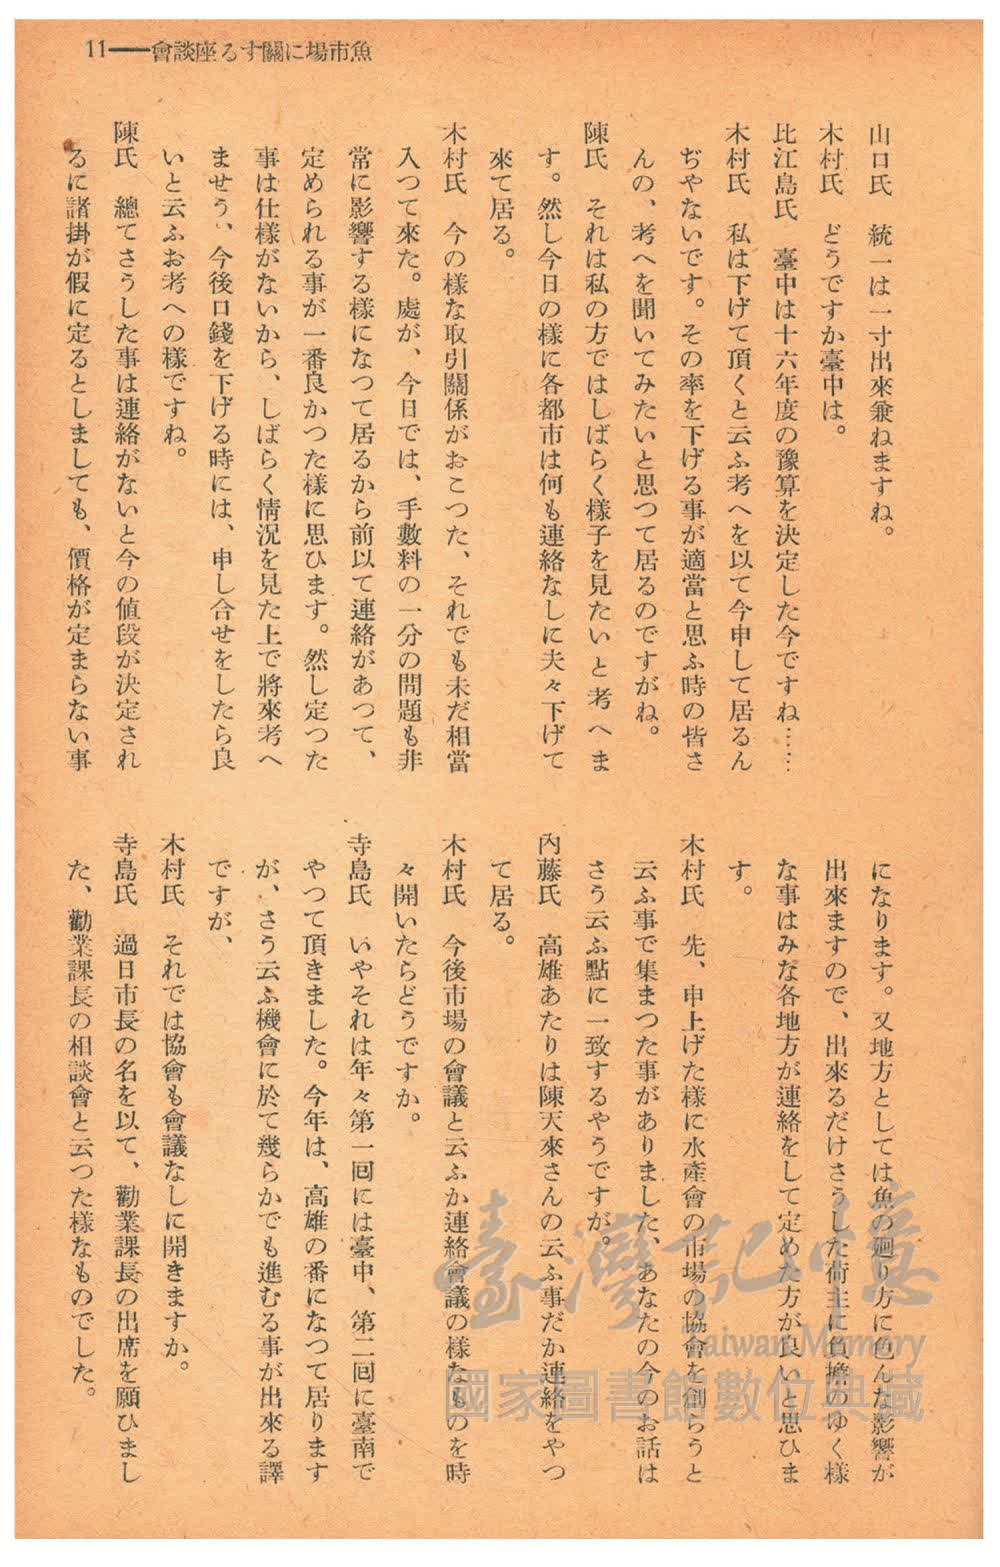 11——會談座るす關に場市魚
山口氏　統一は一寸出來兼ねますね。
木村氏　どうですか臺中は。
比江島氏　臺中は十六年度の豫算を決定した今ですね……
木村氏　私は下げて頂くと云ふ考へを以て今申して居るん
ぢやないです。その率を下げる事が適當と思ふ時の皆さ
んの、考へを聞いてみたいと思つて居るのですがね。
陳氏　それは私の方ではしばらく樣子を見たいと考へま
す。然し今日の樣に各都市は何も連絡なしに夫々下げて
來て居る。
木村氏　今の樣な取引關係がおこつた、それでも未だ相當
入つて來た。處が、今日では、手數料の一分の問題も非
常に影響する樣になつて居るから前以て連絡があつて、
定められる事が一番良かつた樣に思ひます。然し定つた
事は仕樣がないから、しばらく情況を見た上で將來考へ
ませう、今後口錢を下げる時には、申し合せをしたら良
いと云ふお考への樣ですね。
陳氏　總てさうした事は連絡がないと今の値段が決定され
るに諸掛が假に定るとしましても、價格が定まらない事
になります。又地方としては魚の廻り方に色んな影響が
出來ますので、出來るだけさうした荷主に負擔のゆく樣
な事はみな各地方が連絡をして定めた方が良いと思ひま
す。
木村氏　先、申上げた樣に水產會の市場の協會を創らうと
云ふ事で集まつた事がありました、あなたの今のお話は
さう云ふ點に一致するやうですが。
內藤氏　高雄あたりは陳天來さんの云ふ事だか連絡をやつ
て居る。
木村氏　今後市場の會議と云ふか連絡會議の樣なものを時
々開いたらどうですか。
寺島氏　いやそれは年々第一回には臺中、第二回に臺南で
やつて頂きました。今年は、高雄の番になつて居ります
が、さう云ふ機會に於て幾らかでも進むる事が出來る譯
ですが、
木村氏　それでは協會も會議なしに開きますか。
寺島氏　過日市長の名を以て、勸業課長の出席を願ひまし
た、勸業課長の相談會と云つた樣なものでした。
臺灣記憶
Taiwan Memory
國家圖書館數位典藏